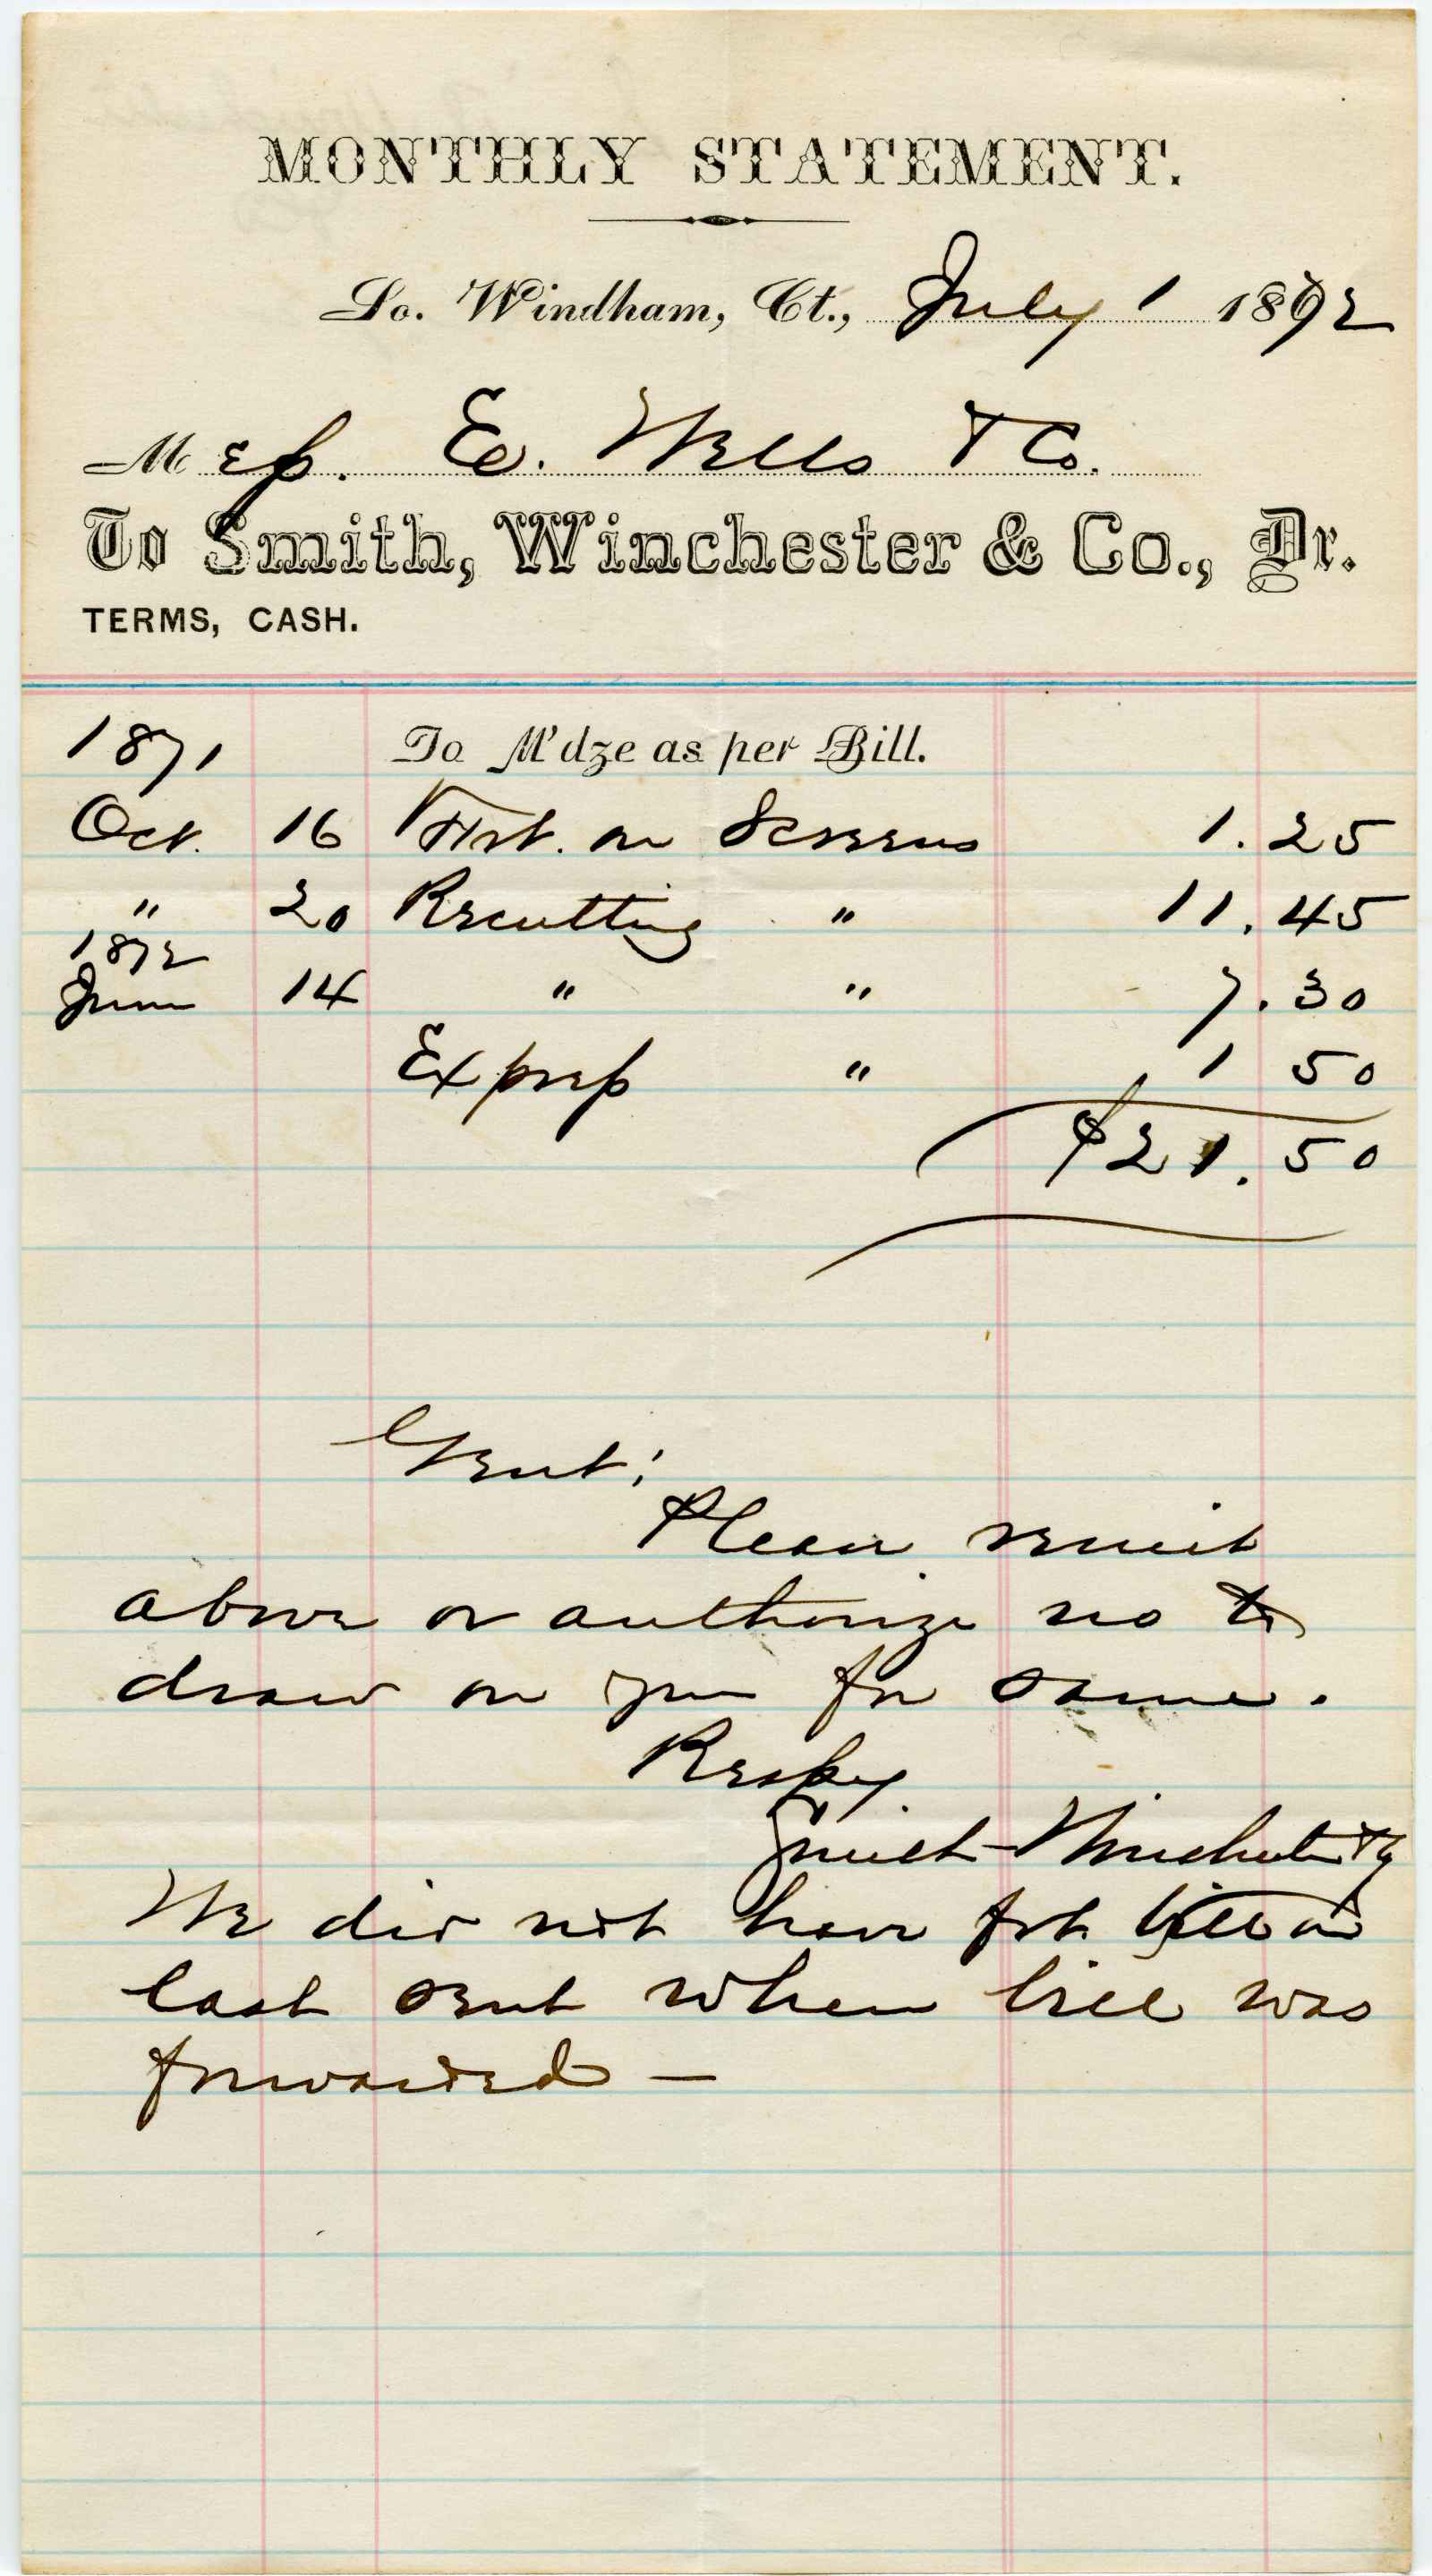 MONTHLY STATEMENT.
So. Windham, Ct., July 1 1872
Mess. E. Wells & Co.
To Smith, Winchester & Co., Dr.
TERMS, CASH.
1871 To M'dze as per Bill.
Oct. 16 Frt. on Screens 1.25
" 20 Recutting " 11.45
1872
June 14 " " 7.30
Express " 1 50
$21.50
Gent:
Please remit
above or authorize us to
draw on you for same.
Respy
Smith Winchester & Co
We did not have frt. bill on
last sent when bill was
forwarded —